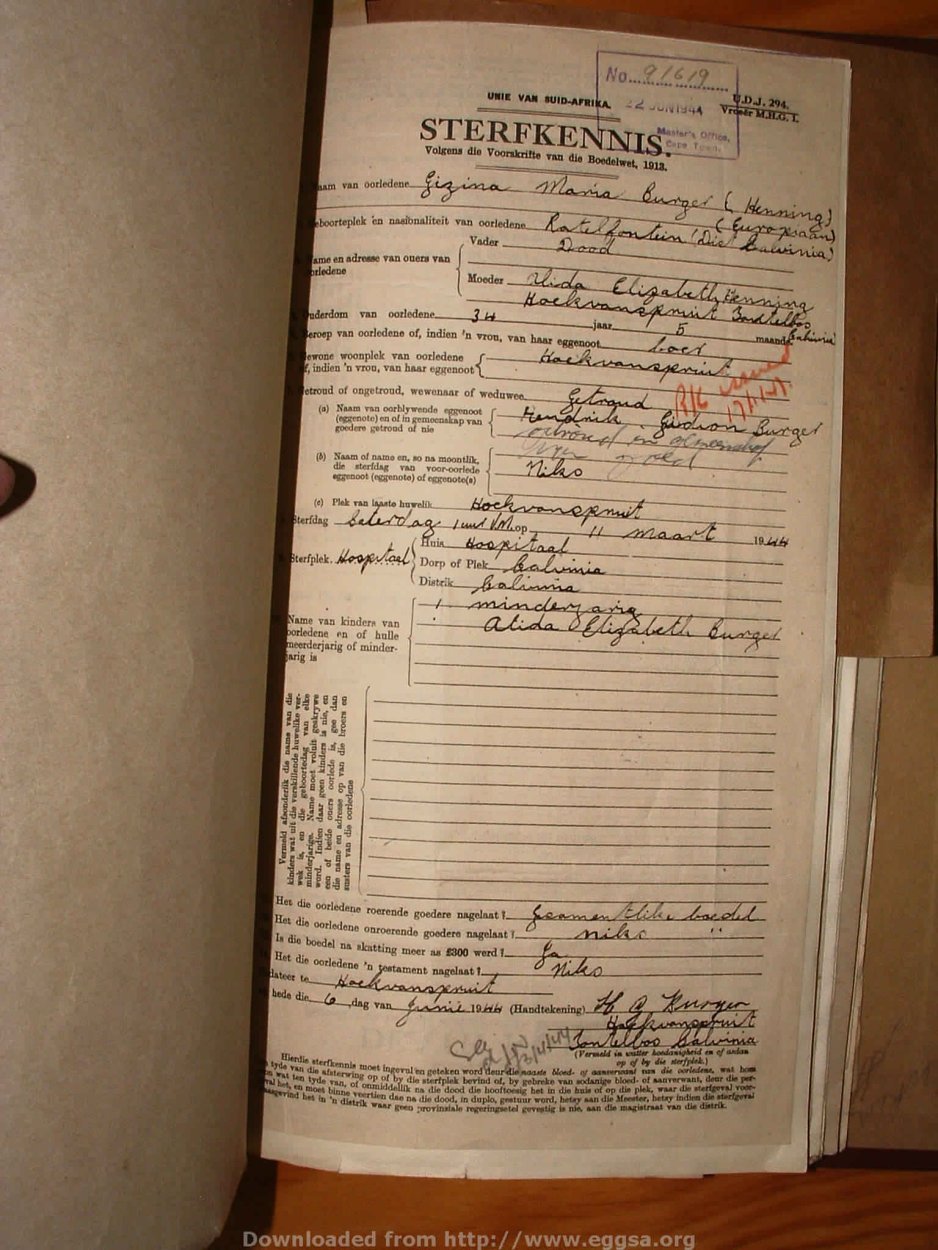 No. 91619
22 JUN 1944
Master's Office,
Cape Town.
U.D.J. 294.
Vroeër M.H.G. I.
UNIE VAN SUID-AFRIKA.
STERFKENNIS.
Volgens die Voorskrifte van die Boedelwet, 1913.
aam van oorledene Gizina Maria Burger (Henning)
(Europiaan)
eboorteplek en nasionaliteit van oorledene Ratelfontein (Dist Calvinia)
ame en adresse van ouers van oorledene
Vader Dood
Moeder Alida Elizabeth Henning
Hoekvanspruit Zoutelbos Calvinia
uderdom van oorledene 34 jaar 5 maande
eroep van oorledene of, indien 'n vrou, van haar eggenoot boer
ewone woonplek van oorledene
f, indien 'n vrou, van haar eggenoot Hoekvanspruit
etroud of ongetroud, wewenaar of weduwee Getroud
(a) Naam van oorblywende eggenoot
(eggenote) en of in gemeenskap van
goedere getroud of nie
Hendrik Gidion Burger
getroud in gemeenskap
van goed
(b) Naam of name en, so na moontlik,
die sterfdag van voor-oorlede
eggenoot (eggenote) of eggenote(s)
Niks
(c) Plek van laaste huwelik Hoekvanspruit
Sterfdag Saterdag 1 uur VM. op 11 Maart 1944
Sterfplek. Hospitaal
Huis Hospitaal
Dorp of Plek Calvinia
Distrik Calvinia
Name van kinders van
oorledene en of hulle
meerderjarig of minder-
jarig is
1 minderjarig
Alida Elizabeth Burger
Vermeld afsonderlik die name van die
kinders wat uit die verskillende huwelike ver-
wek is, en die geboortedag van elke
minderjarige. Name moet voluit geskrywe
word. Indien daar geen kinders is nie, en
een of beide ouers oorlede is, gee dan
die name en adresse op van die broers en
susters van die oorledene
Het die oorledene roerende goedere nagelaat? Gesamentlike boedel
Het die oorledene onroerende goedere nagelaat? niks "
Is die boedel na skatting meer as £300 werd? Ja
Het die oorledene 'n testament nagelaat? Niks
dateer te Hoekvanspruit
hede die 6 dag van Junie 1944 (Handtekening) H G Burger
Hoekvanspruit
Zoutelbos Calvinia
(Vermeld in watter hoedanigheid en of sodan
op of by die sterfplek.)
Hierdie sterfkennis moet ingevul en geteken word deur die naaste bloed- of aanverwant van die oorledene, wat hom
tyde van die afsterwing op of by die sterfplek bevind of, by gebreke van sodanige bloed- of aanverwant, deur die per-
on wat ten tyde van, of onmiddellik na die dood die hooftoesig het in die huis of op die plek, waar die sterfgeval voor-
val het, en moet binne veertien dae na die dood, in duplo, gestuur word, hetsy aan die Meester, hetsy indien die sterfgeval
aasgevind het in 'n distrik waar geen provinsiale regeringsetel gevestig is nie, aan die magistraat van die distrik.
Downloaded from http://www.eggsa.org